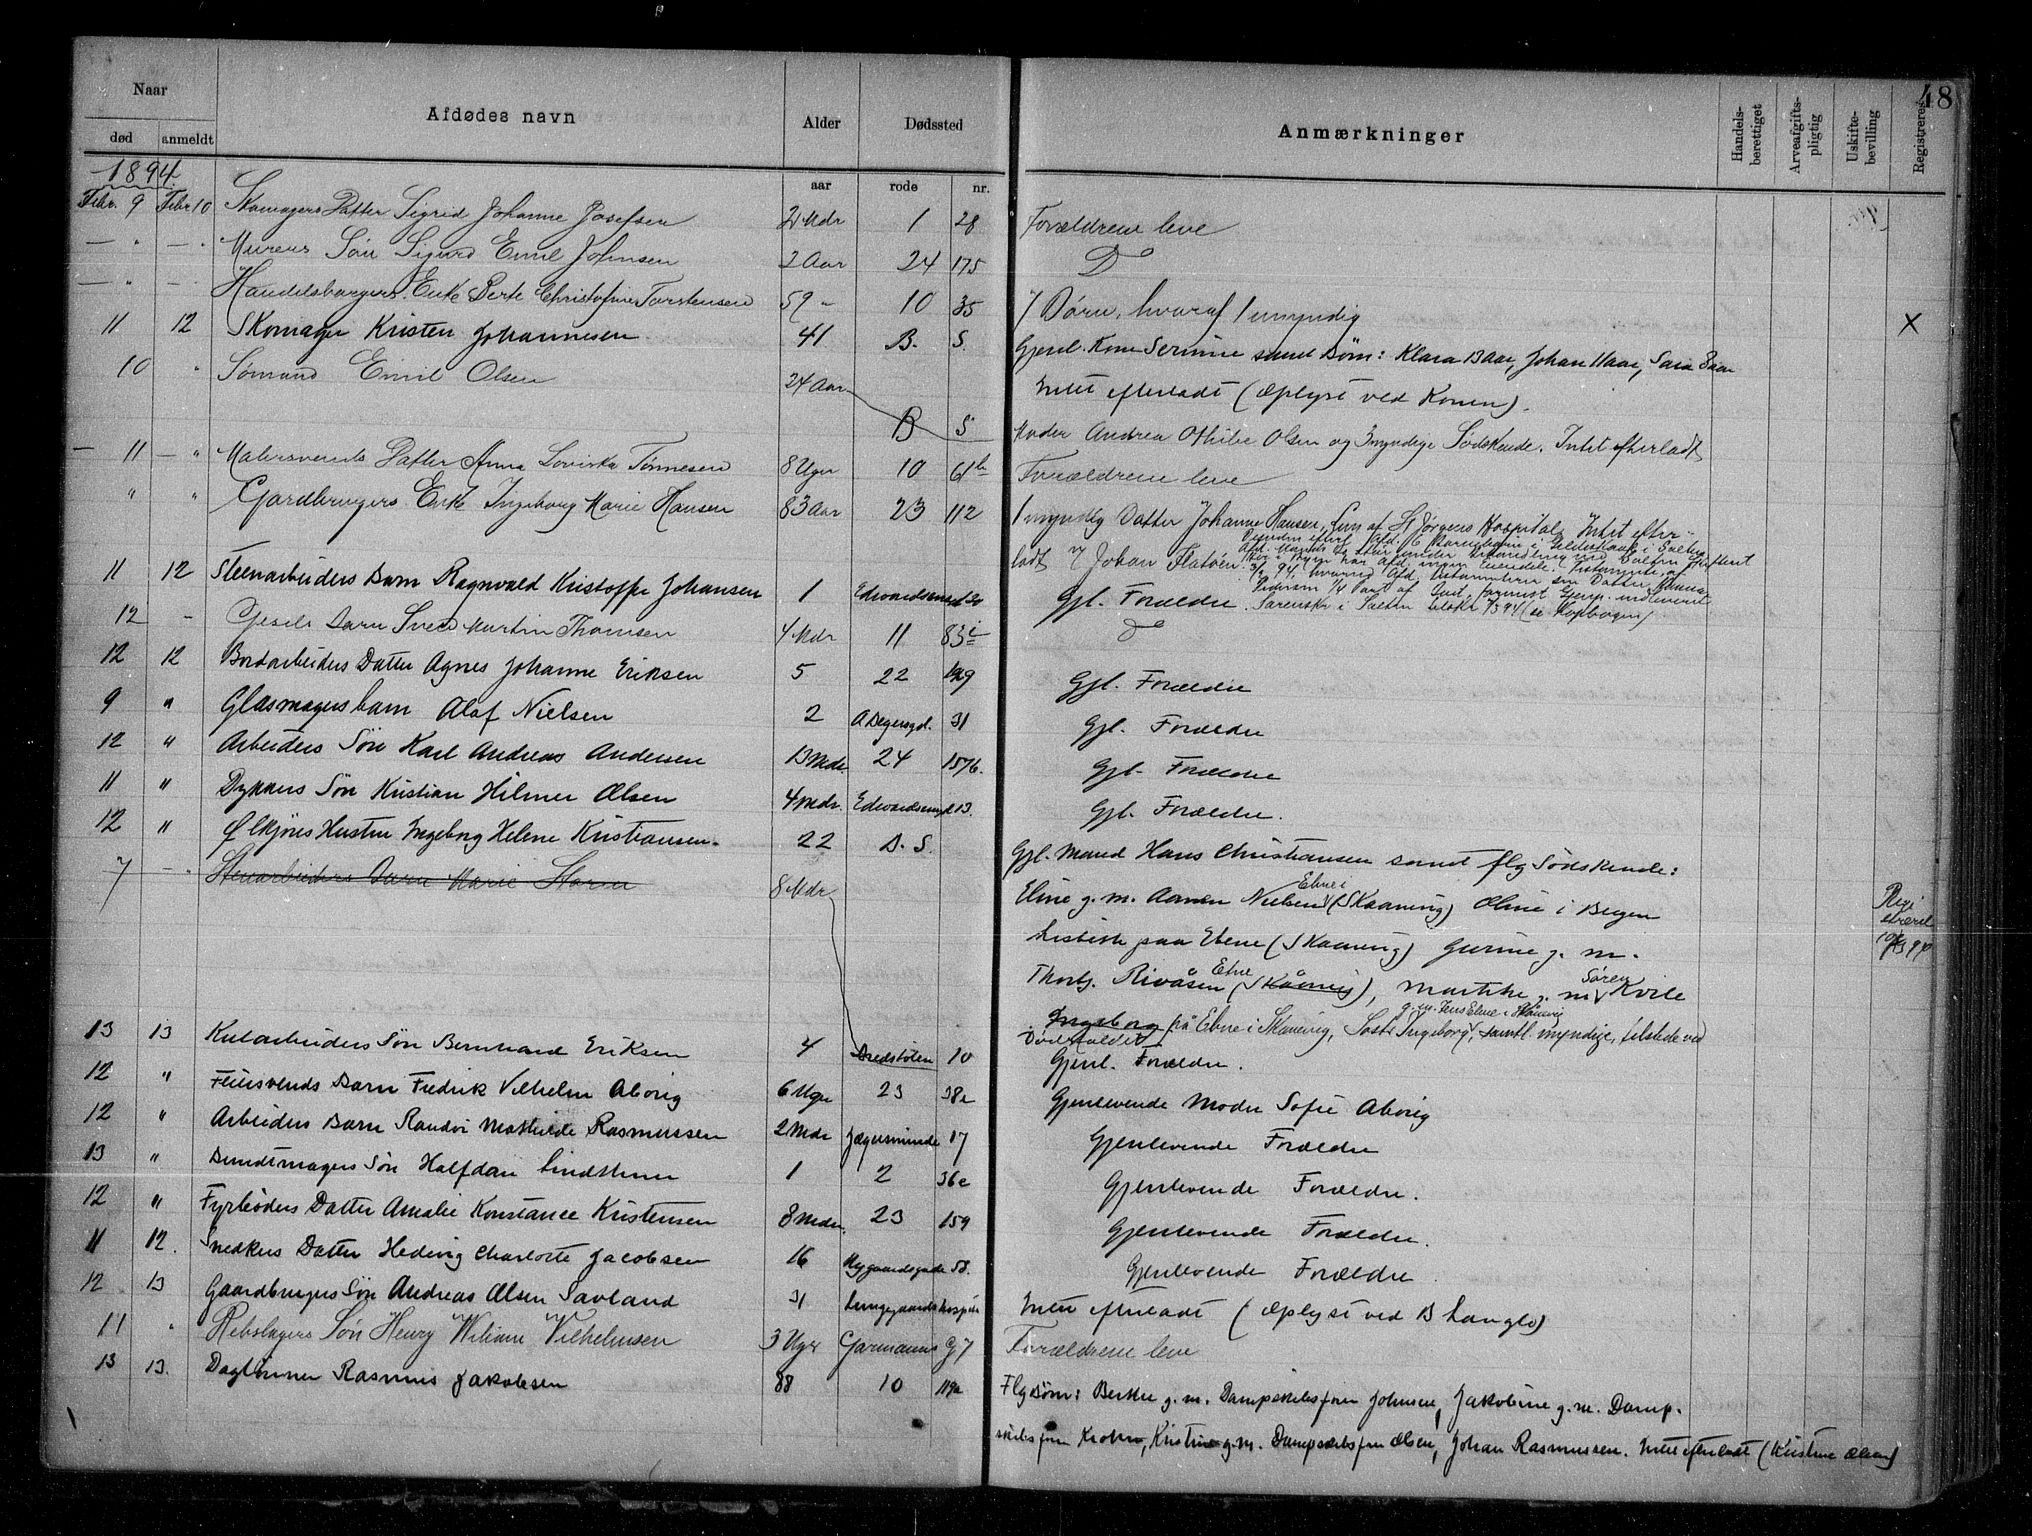 48
Naar
Afdødes navn
Alder
Dødssted
Anmærkninger
Handels-berettiget
Arveafgifts-pligtig
Uskifte-bevilling
Registreres
død
anmeldt
aar
rode
nr.
1894
Febr. 9 Febr 10 Skomagers Datter Sigrid Johanne Josefsen 2 Mdr 1 28 Forældrene leve
— " — " Murers Søn Sigurd Emil Johnsen 2 Aar 24 175 D
— " — " Handelsborgers Enke Berte Christofine Torstensen 59 " 10 35 7 Børn, hvoraf 1 umyndig X
11 12 Skomager Kristen Johannesen 41 B. S. Gjenl. Kone Serine samt Børn: Klara 13 Aar, Johan 11 aar, Sara 8 aar
Intet efterladt (Oplyst ved Konen).
10 " Sømand Emil Olsen 24 Aar B S Moder Andrea Othilie Olsen og 3 myndige Sødskende. Intet efterladt
— 11 — " Malersvends Datter Anna Loviska Tønnesen 8 Uger 10 61b Forældrene leve
" " Gardbrugers Enke Ingeborg Marie Hansen 83 Aar 23 112 1 myndig Datter Johanne Hansen, Lem af St Jørgens Hospital, Intet efter-
ladt v/ Johan Flatøen
11 12 Stenarbeiders Barn Ragnvald Kristoffer Johansen 1 Gjl. Forældre
12 — Barn Svend Martin Thomsen 4 Mdr 11 83 D
12 12 Bordarbeiders Datter Agnes Johanne Eriksen 5 22 Gjl. Forældre
9 " Glasmagers barn Olaf Nielsen 2 31 Gjl. Forældre
12 " Arbeiders Søn Karl Andreas Andersen 13 Mdr. 24 157b. Gjl. Forældre
11 " Dykkers Søn Kristian Hilmer Olsen 4 Mdr. 13. Gjl. Forældre.
12 " Ølkjørers Hustru Ingeborg Helene Kristiansen. 22 B. S. Gjl. Mand Hans Christiansen samt flg Sødskende:
7 — " Stenarbeiders Barn Marie 8 Mdr
Eline g. m. Aamen Nielsen Ebne i (Skaanevig) Oline i Bergen
Lisbeth paa Ebene (Skaanevig) Gurine g. m.
Thorbj. Rivåsen Ebne (Skånevig), Marthe g. m. Søren Kvile
Ingeborg på Ebne i Skanevig, Ingeborg, g. m. Jens Ebne i Skånevig samtl. myndige, tilstede ved
Dødsfaldet
Regi
streret
13 13 Kularbeiders Søn Bernhard Eriksen 4 10 Gjenl. Forældre.
12 " Feiersvends Barn Fredrik Vilhelm Aborig 6 Uger 23 38a Gjenlevende Moder Sofie Aborig
12 " Arbeiders Barn Randvi Mathilde Rasmussen 2 Mdr Jægersminde 17 Gjenlevende Forældre
13 " Bundtmagers Søn Halfdan Lindthner 1 2 36c Gjenlevende Forældre.
12 " Fyrbøders Datter Amalie Konstance Kristensen 8 Mdr. 23 159 Gjenlevende Forældre.
11 12. Snedkers Datter Hedevig Charlotte Jacobsen 16 Nygaardsgade 58. Gjenlevende Forældre.
12 13 Gaardbrugers Søn Andreas Olsen Savland 31 Lungegaards hospital Intet efterladt (Oplyst ved B Langlo)
11 " Rebslagers Søn Henry William Vilhelmsen 3 Uger Garmanns G 7 Forældrene leve
13 13. Daglønner Rasmus Jakobsen 88 10 119a Flg Børn: Berthe g. m. Dampskibsfører Johnsen, Jakobine g. m. Damp-
skibsfører Krohn, Kristine g. m. Dampskibsfører Olsen, Johan Rasmussen. Intet efterladt (Kristine Olsen)